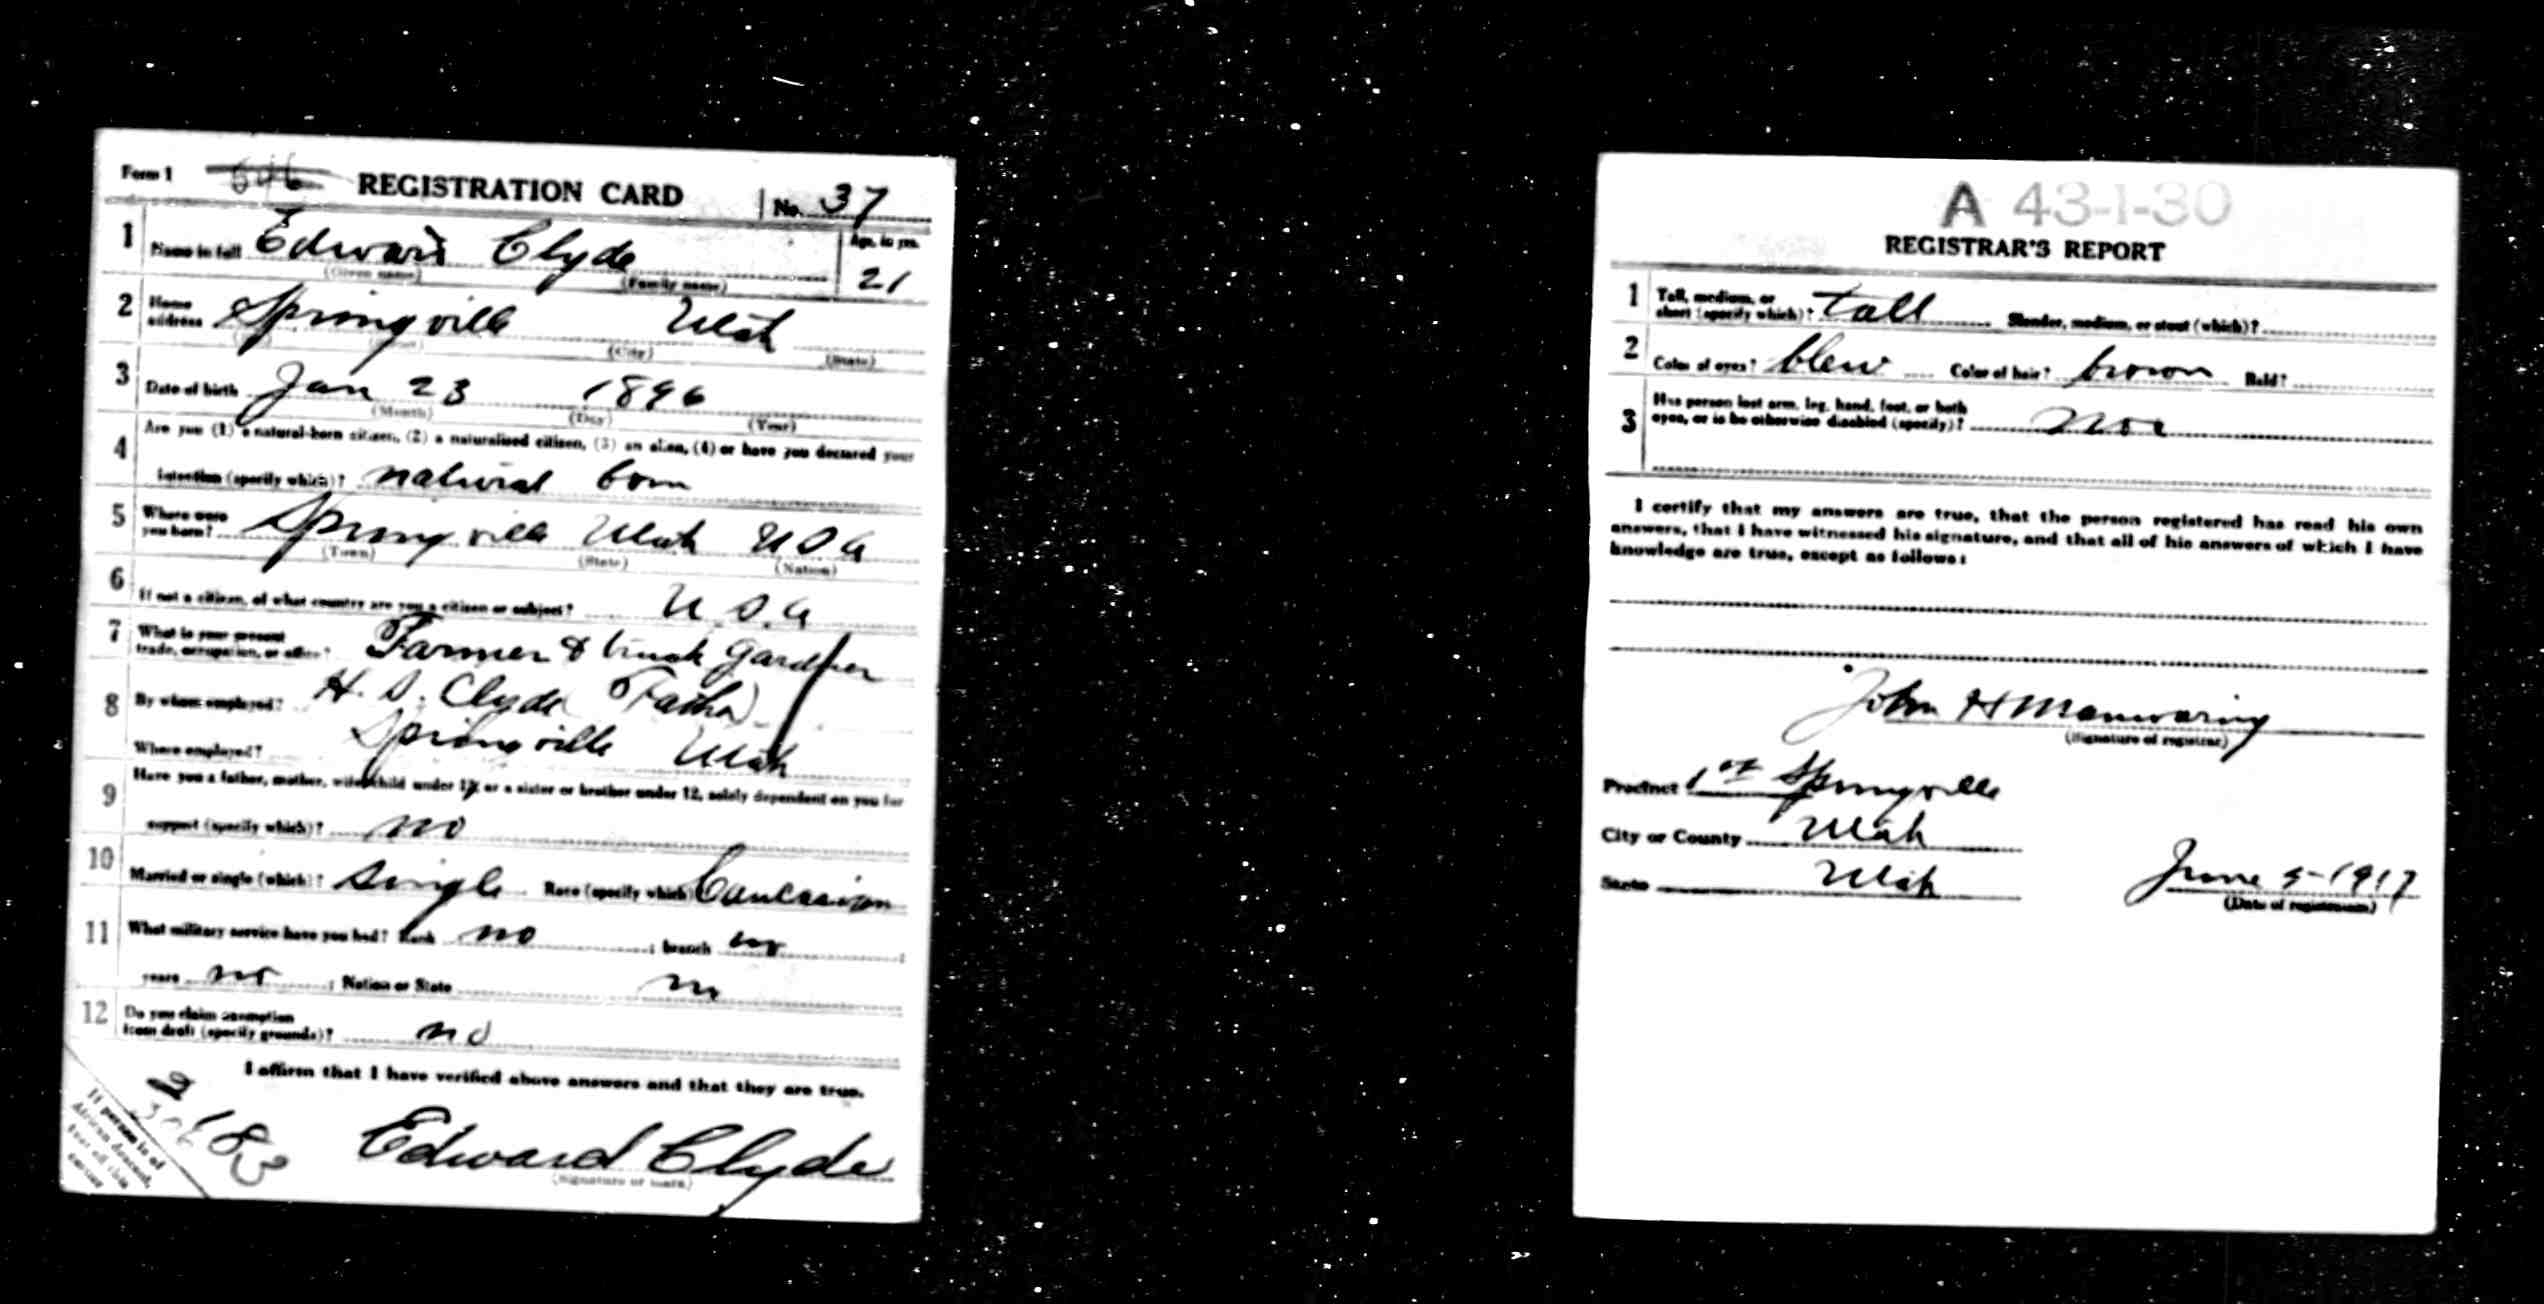 Form 1 646 REGISTRATION CARD No. 37
1 Name in full Edward Clyde Age, in yrs.
(Given name) (Family name) 21
2 Home address Springville Utah
(City) (State)
3 Date of birth Jan 23 1896
(Month) (Day) (Year)
4 Are you (1) a natural-born citizen, (2) a naturalized citizen, (3) an alien, (4) or have you declared your
intention (specify which)? natural born
5 Where were you born? Springville Utah USA
(Town) (State) (Nation)
6 If not a citizen, of what country are you a citizen or subject? U.S.A
7 What is your present trade, occupation, or office? Farmer & truck gardner
8 By whom employed? H. S. Clyde (Father)
Where employed? Springville Utah
9 Have you a father, mother, wife, child under 12, or a sister or brother under 12, solely dependent on you for
support (specify which)? no
10 Married or single (which)? Single Race (specify which) Caucasian
11 What military service have you had? Rank no ; branch no ;
years no ; Nation or State no
12 Do you claim exemption from draft (specify grounds)? no
I affirm that I have verified above answers and that they are true.
Edward Clyde
(Signature or mark)
If person is of African descent, tear off this corner
183
A 43-1-30
REGISTRAR'S REPORT
1 Tall, medium, or short (specify which)? tall Slender, medium, or stout (which)?
2 Color of eyes? blew Color of hair? brown Bald?
3 Has person lost arm, leg, hand, foot, or both
eyes, or is he otherwise disabled (specify)?
I certify that my answers are true, that the person registered has read his own
answers, that I have witnessed his signature, and that all of his answers of which I have
knowledge are true, except as follows:
John H Manwaring
(Signature of registrar)
Precinct 1st Springville
City or County Utah
State Utah June 5-1917
(Date of registration)